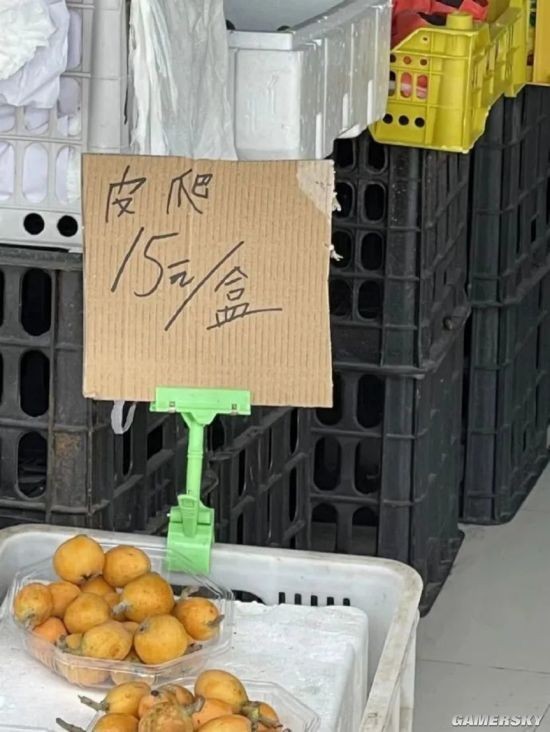 皮爬
15元/盒
GAMERSKY